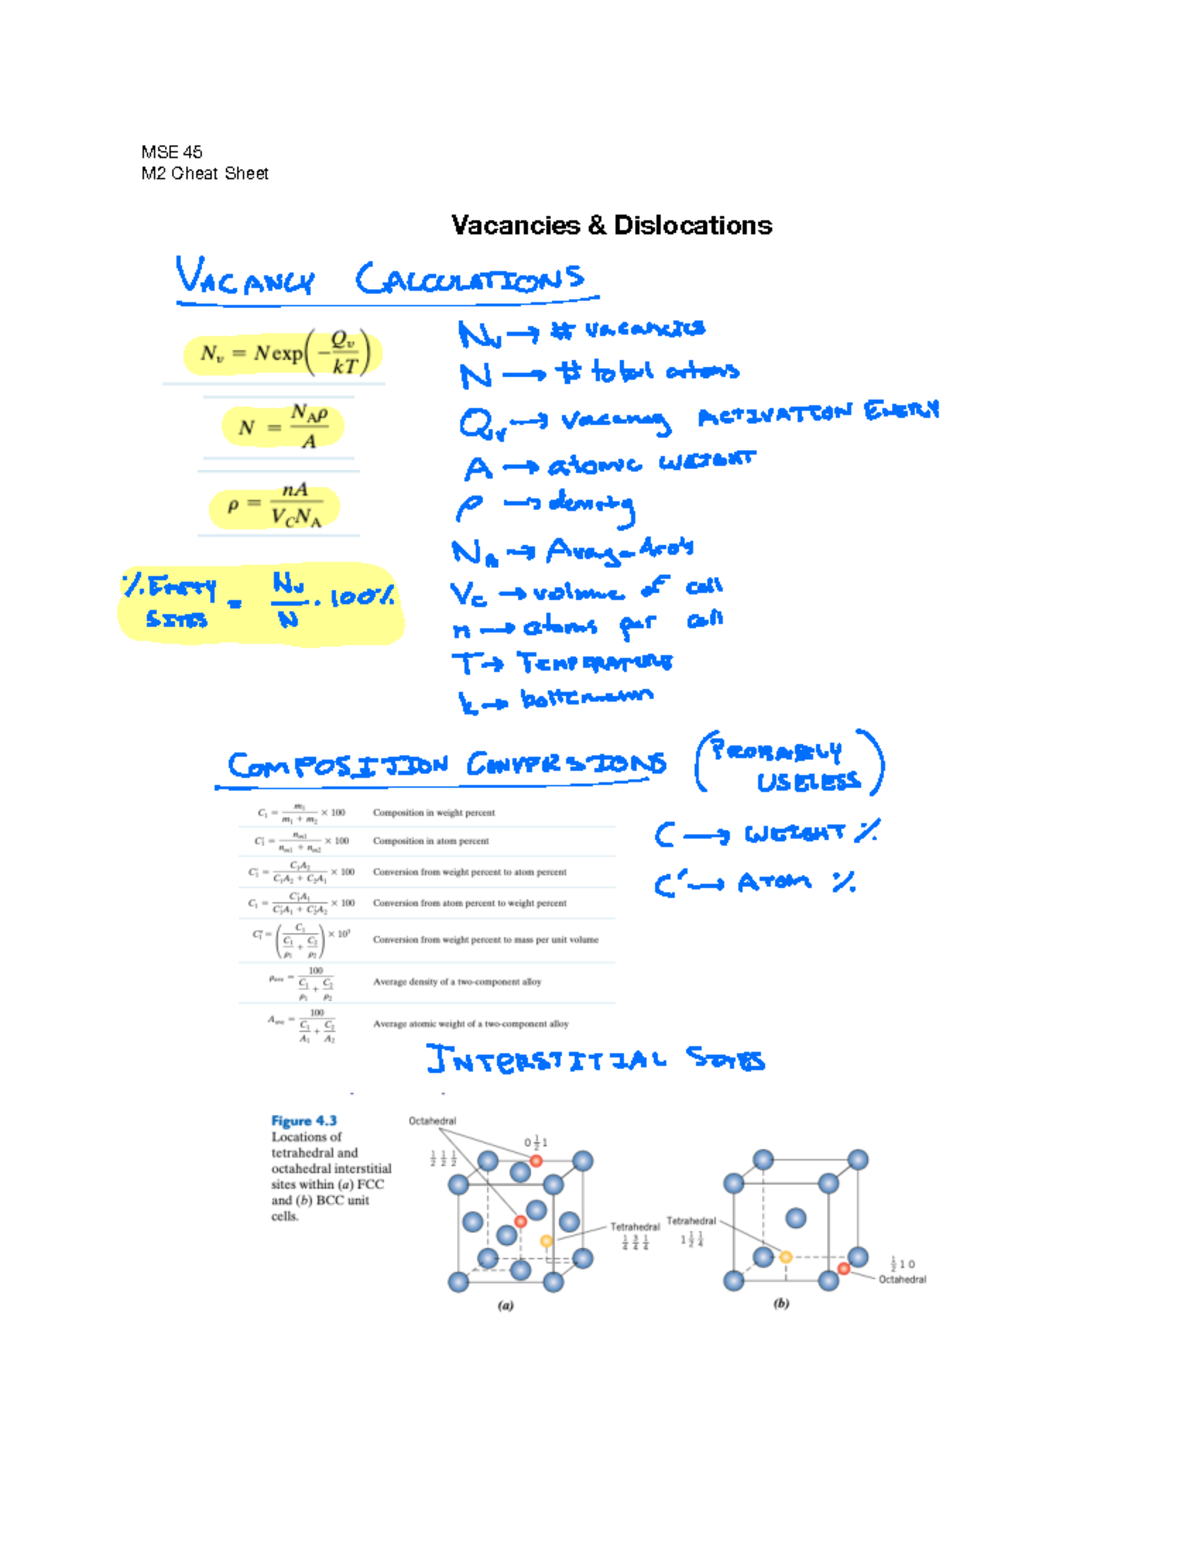 MSE 45
M2 Cheat Sheet
Vacancies & Dislocations
VACANCY CALCULATIONS
N_v = N exp(−Q_v/kT)
N = N_Aρ/A
ρ = nA/V_CN_A
% EMPTY SITES = N_v/N · 100%
N_v → # vacancies
N → # total atoms
Q_v → vacancy ACTIVATION ENERGY
A → atomic WEIGHT
ρ → density
N_A →
V_C → volume of cell
n → atoms per cell
T → TEMPERATURE
k →
COMPOSITION CONVERSIONS (PROBABLY
USELESS)
C → WEIGHT %
C' → ATOM %
C₁ = m₁/(m₁ + m₂) × 100 Composition in weight percent
C₁' = n_m1/(n_m1 + n_m2) × 100 Composition in atom percent
C₁' = C₁A₂/(C₁A₂ + C₂A₁) × 100 Conversion from weight percent to atom percent
C₁ = C₁'A₁/(C₁'A₁ + C₂'A₂) × 100 Conversion from atom percent to weight percent
C₁" = (C₁/(C₁/ρ₁ + C₂/ρ₂)) × 10³ Conversion from weight percent to mass per unit volume
ρ_ave = 100/(C₁/ρ₁ + C₂/ρ₂) Average density of a two-component alloy
A_ave = 100/(C₁/A₁ + C₂/A₂) Average atomic weight of a two-component alloy
INTERSTITIAL SITES
Figure 4.3
Locations of
tetrahedral and
octahedral interstitial
sites within (a) FCC
and (b) BCC unit
cells.
Octahedral
0 ½ 1
½ ½ ½
Tetrahedral
¼ ¾ ¼
(a)
Tetrahedral
1 ½ ¼
½ 1 0
Octahedral
(b)